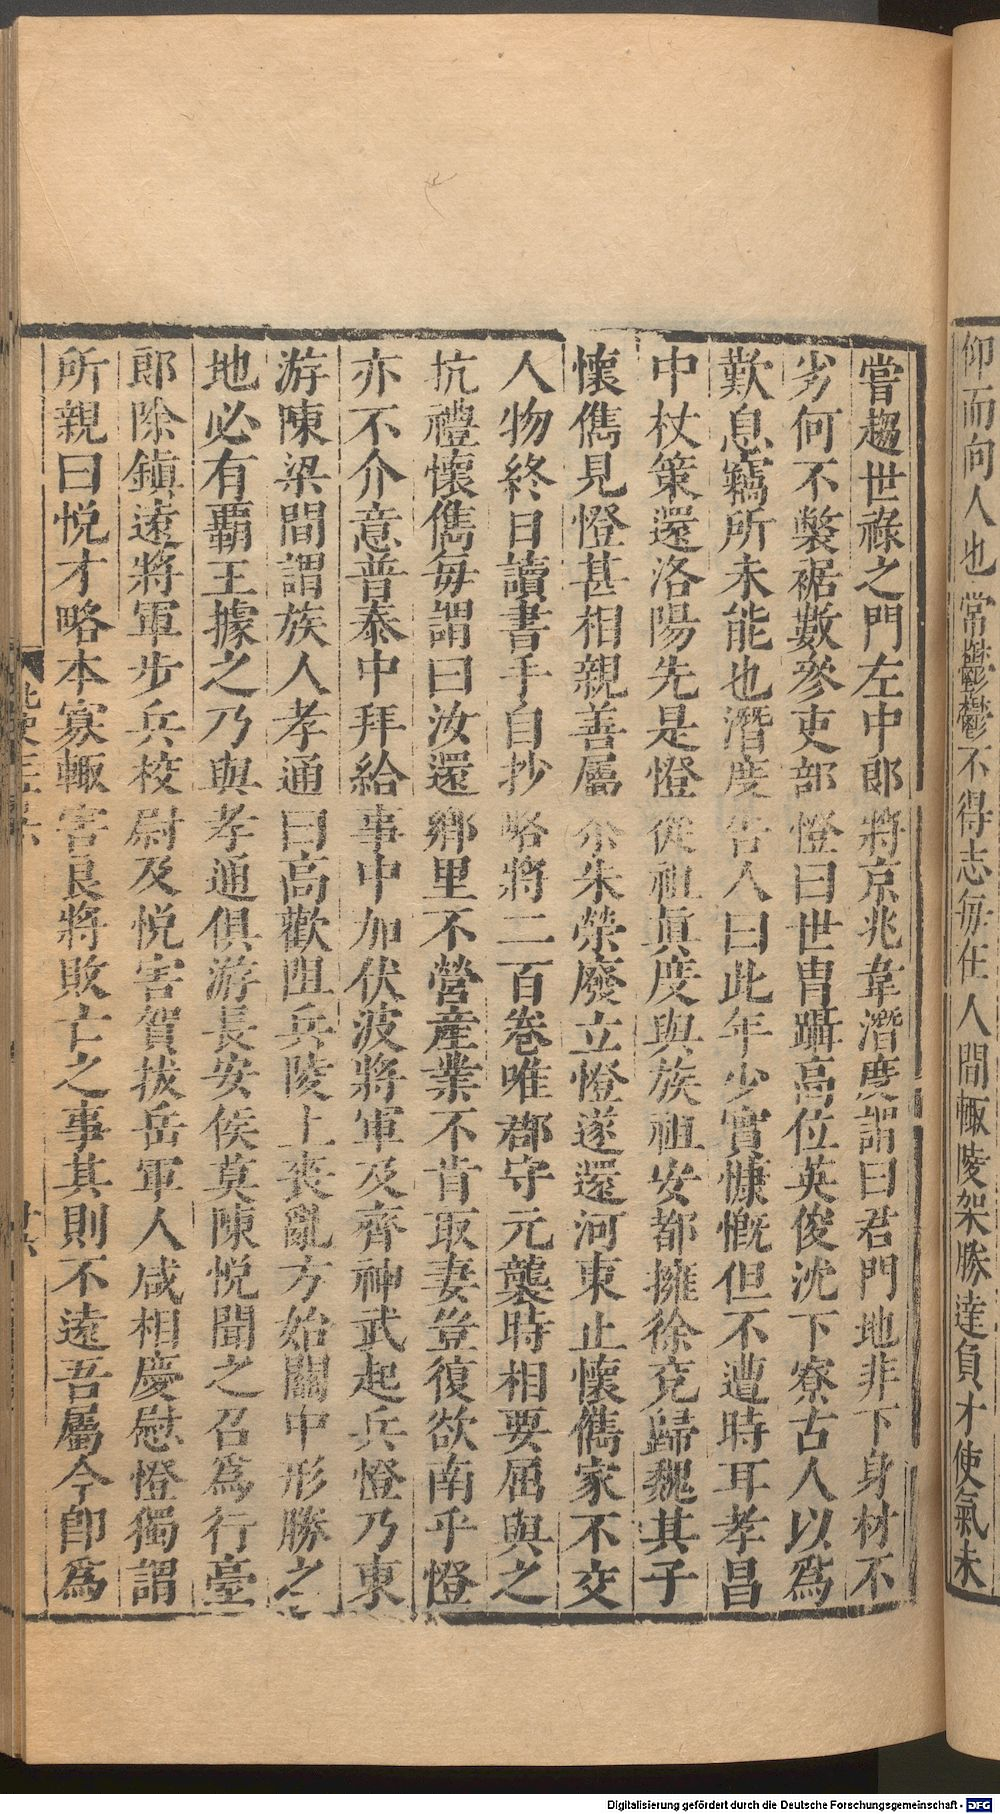 仰而向人也常鬱鬱不得志每在人間輒陵架勝達負才使氣未
嘗趨世祿之門左中郎將京兆韋潛度謂曰君門地非下身材不
劣何不褩裾數參吏部憕曰世冑躡高位英俊沈下寮古人以爲
歎息竊所未能也潛度告人曰此年少實慷慨但不遭時耳孝昌
中杖策還洛陽先是憕從祖眞度與族祖安都擁徐兗歸魏其子
懷儁見憕甚相親善屬尒朱榮廢立憕遂還河東止懷儁家不交
人物終日讀書手自抄略將二百卷唯郡守元襲時相要屈與之
抗禮懷儁每謂曰汝還鄉里不營產業不肯取妻豈復欲南乎憕
亦不介意普泰中拜給事中加伏波將軍及齊神武起兵憕乃東
游陳梁間謂族人孝通曰高歡阻兵陵上喪亂方始關中形勝之
地必有霸王據之乃與孝通俱游長安侯莫陳悅聞之召爲行臺
郎除鎭遠將軍步兵校尉及悅害賀拔岳軍人咸相慶慰憕獨謂
所親曰悅才略本寡輒害良將敗亡之事其則不遠吾屬今卽爲
北史三十六
廿六
Digitalisierung gefördert durch die Deutsche Forschungsgemeinschaft - DFG